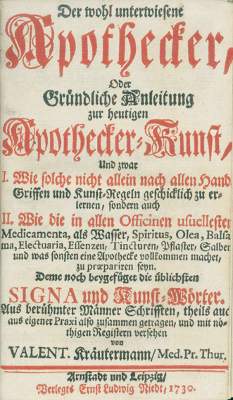 Der wohl unterwiesene
Apothecker,
Oder
Gründliche Anleitung
zur heutigen
Apothecker-Kunst,
Und zwar
I. Wie solche nicht allein nach allen Hand
Griffen und Kunst-Regeln geschicklich zu er-
lernen, sondern auch
II. Wie die in allen Officinen usuellester
Medicamenta, als Wasser, Spiritus, Olea, Balsa
ma, Electuaria, Essenzen, Tincturen, Pflaster, Salben
und was sonsten eine Apothecke vollkommen machet,
zu præpariren seyn.
Deme noch beygefüget die üblichsten
SIGNA und Kunst-Wörter.
Aus berühmter Männer Schrifften, theils auc
aus eigener Praxi also zusammen getragen, und mit nö-
thigen Registern versehen
von
VALENT. Kräutermann/ Med. Pr. Thur.
Arnstadt und Leipzig/
Verlegts Ernst Ludwig Niedt, 1730.